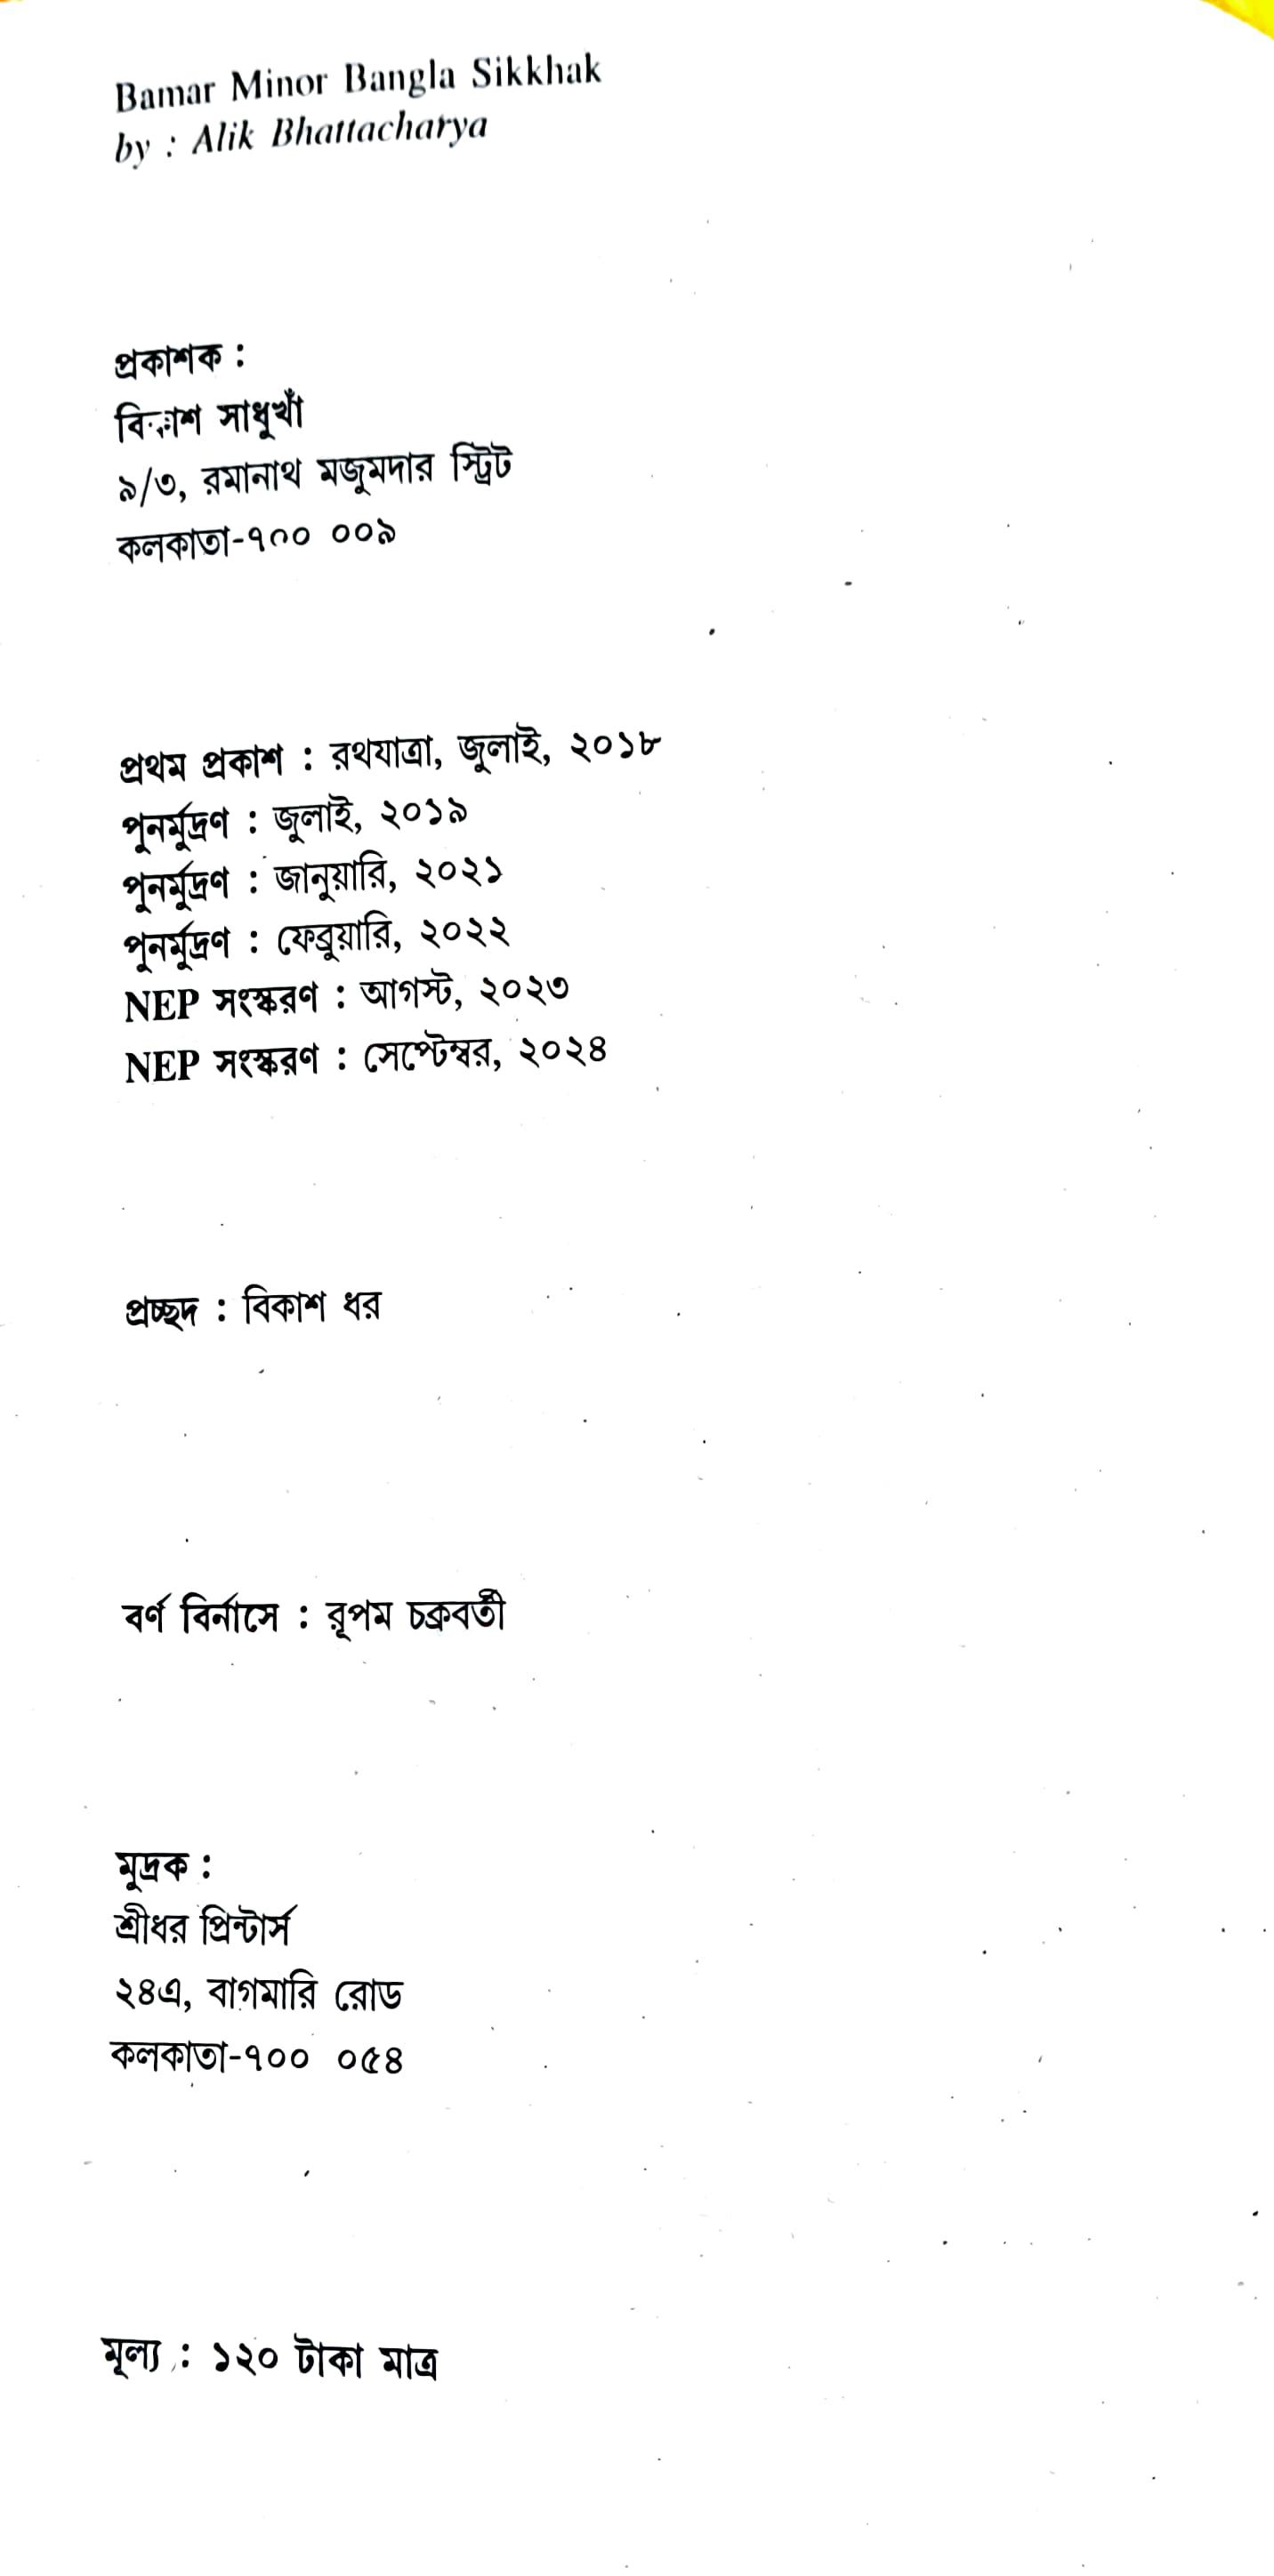 Bamar Minor Bangla Sikkhak
by : Alik Bhattacharya
প্রকাশক :
সাধুখাঁ
৯/৩, রমানাথ মজুমদার স্ট্রিট
কলকাতা-৭০০ ০০৯
প্রথম প্রকাশ : রথযাত্রা, জুলাই, ২০১৮
পুনর্মুদ্রণ : জুলাই, ২০১৯
পুনর্মুদ্রণ : জানুয়ারি, ২০২১
পুনর্মুদ্রণ : ফেব্রুয়ারি, ২০২২
NEP সংস্করণ : আগস্ট, ২০২৩
NEP সংস্করণ : সেপ্টেম্বর, ২০২৪
প্রচ্ছদ : বিকাশ ধর
বর্ণ বির্নাসে : রূপম চক্রবর্তী
মুদ্রক :
শ্রীধর প্রিন্টার্স
২৪এ, বাগমারি রোড
কলকাতা-৭০০ ০৫৪
মূল্য : ১২০ টাকা মাত্র